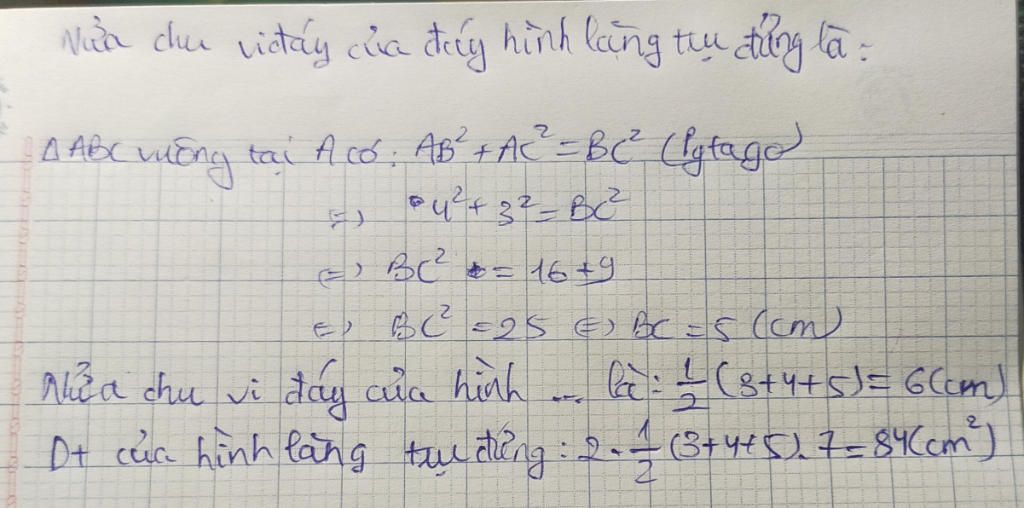 Nửa chu vi đáy của đáy hình lăng trụ đứng là:
Δ ABC vuông tại A có: AB² + AC² = BC² (Pytago)
=> 4² + 3² = BC²
(=) BC² = 16 + 9
(=) BC² = 25 (=) BC = 5 (cm)
Nửa chu vi đáy của hình ... là: 1/2 (3+4+5) = 6 (cm)
Dt của hình lăng trụ đứng: 2 . 1/2 (3+4+5) . 7 = 84 (cm²)